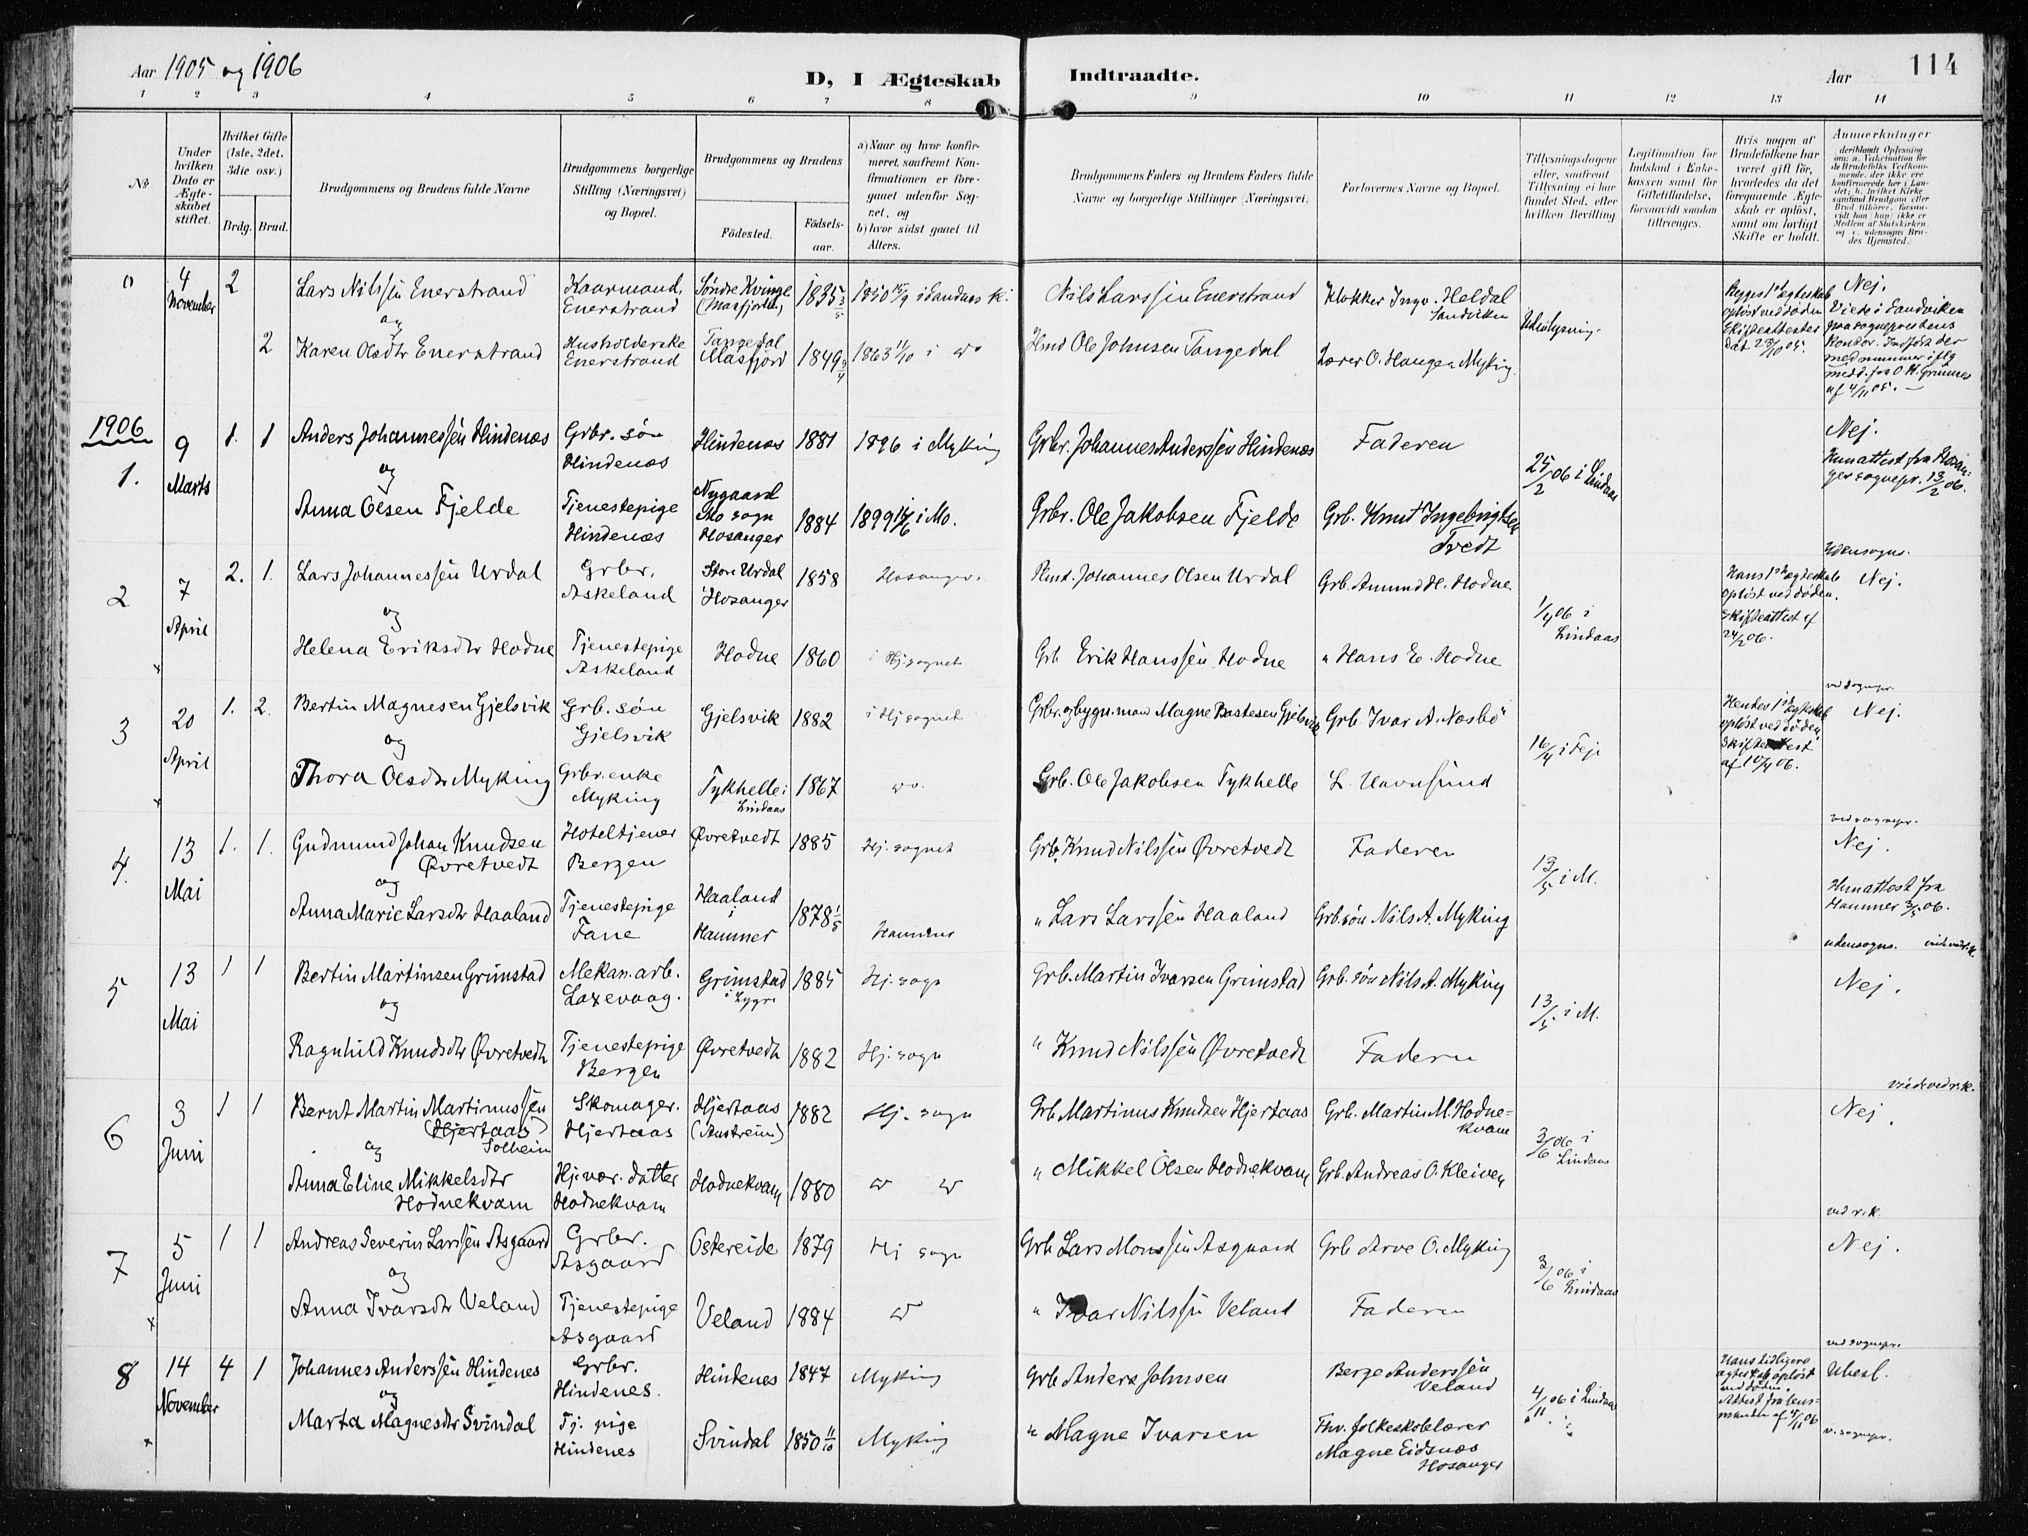 Aar 1905 og 1906
D, I Ægteskab Indtraadte.
Aar 114
1 2 3 4 5 6 7 8 9 10 11 12 13 14
No
Under hvilken Dato er Ægteskabet stiftet.
Hvilket Gifte (1ste, 2det, 3die osv.)
Brdg. Brud.
Brudgommens og Brudens fulde Navne
Brudgommens borgerlige Stilling (Næringsvei) og Bopæl.
Brudgommens og Brudens
Fødested.
Fødselsaar.
a) Naar og hvor konfirmeret, saafremt Konfirmationen er foregaaet udenfor Sognet, og
b) hvor sidst gaaet til Alters.
Brudgommens Faders og Brudens Faders fulde Navne og borgerlige Stillinger (Næringsvei)
Forlovernes Navne og Bopæl.
Tillysningsdagene eller, saafremt Tillysning ei har fundet Sted, efter hvilken Bevilling
Legitimation for Indskud i Enkekassen samt for Giftetilladelse, forsaavidt saadan tiltrænges.
Hvis nogen af Brudefolkene har været gift før, hvorledes da det foregaaende Ægteskab er opløst, samt om lovligt Skifte er holdt.
Anmerkninger
0 4 November 2 Lars Nilssen Enerstrand Kaarmand, Enerstrand Søndre Kvinge (Masfjorden) 1835 1850 15/9 i Sandnes k. Nils Larssen Enerstrand Klokker Ingv. Heldal Sandviken Nei.
og
2 Karen Olsdtr Enerstrand Husholderske Enerstrand Tangedal Masfjord 1849 1863 11/10 i do Hmd Ole Johnsen Tangedal Lærer O. Haugen Myking.
Begges 1ste ægteskab opløst ved døden Skifteattester dat 23/10 05.
Viede i Sandviken paa sogneprestens Kontor.
1906
1. 9 Marts 1. 1 Anders Johannessen Hindenæs Grbr. søn Hindenæs Hindenæs 1881 1896 i Myking Grbr. Johannes Anderssen Hindenæs Faderen 25/2 06 i Lindaas Nej.
og
Anna Olsen Fjelde Tjenestepige Hindenæs Nygaard Mo sogn Hosanger 1884 1899 i Mo. Grbr. Ole Jakobsen Fjelde Grb. Knut Ingebrigtsen Tvedt
Hun attest fra Hosanger sognepr. 13/2 06.
Udensogns.
2 7 April 2. 1. Lars Johannessen Urdal Grbr. Askeland Store Urdal Hosanger 1858 Hosanger. Hmd. Johannes Olsen Urdal Grb. Amund H. Hodne 1/4 06 i Lindaas Hans 1ste ægteskab opløst ved døden. Skifteattest af 24/2 06. Nej.
og
Helena Eriksdtr Hodne Tjenestepige Askeland Hodne 1860 i Hj. sognet Grb Erik Hanssen Hodne " Hans E. Hodne
ved sognepr.
3 20 April 1. 2. Bertin Magnesen Gjelsvik Grb. søn Gjelsvik Gjelsvik 1882 i Hj sognet Grbr. og bygn. mand Magne Bastesen Gjelsvik Grb. Ivar A. Næsbø 16/4 i Feje Hendes 1ste ægteskab opløst ved døden Skifteattest af 10/4 06. Nej.
og
Thora Olsdtr Myking Grbr. enke Myking Tykhelle i Lindaas 1867 do. Grb. Ole Jakobsen Tykhelle L. Havnsund
ved sognepr.
4. 13 Mai 1. 1. Gudmund Johan Knudsen Øvretvedt Hoteltjener Bergen Øvretvedt 1885 Hj. sognet Grb. Knud Nilssen Øvretvedt Faderen 13/5 i M. Nej.
og
Anna Marie Larsdtr Haaland Tjenestepige Fane Haaland i Hammer 1878 1/5 Hammer " Lars Larssen Haaland Grb søn Nils A. Myking
Hun attest fra Hammer 3/5 06.
udensogns.
5 13 Mai 1 1 Bertin Martinsen Grimstad Mekan. arb. Laxevaag. Grimstad i Lygre 1885 Hj. sogn Grb. Martin Ivarsen Grimstad Grb. søn Nils A. Myking 13/5 i M. Nej.
og
Ragnhild Knudsdtr Øvretvedt Tjenestepige Bergen Øvretvedt 1882 Hj. sogn " Knud Nilssen Øvretvedt Faderen
viede ved r.k.
6 3 Juni 1 1 Bernt Martin Martinussen (Hjertaas) Solheim Skomager. Hjertaas Hjertaas (Austreim) 1882 Hj. sogn Grb Martinus Knudsen Hjertaas Grb. Martin M. Hodnekvam 3/6 06 i Lindaas Nej.
og
Anna Eline Mikkelsdtr Hodnekvam Hj. vær. datter Hodnekvam Hodnekvam 1880 do do " Mikkel Olsen Hodnekvam Grb. Andreas O. Kleiven
ved r.k.
7 5 Juni 1 1 Andreas Severin Larssen Asgaard Grbr. Asgaard Ostereide 1879 Hj sogn Grb Lars Monssen Asgaard Grb Arve O. Myking 3/6 06 i Lindaas Nej.
og
Anna Ivarsdtr Veland Tjenestepige Asgaard Veland 1884 do " Ivar Nilssen Veland Faderen
ved sognepr.
8 14 November 4 1 Johannes Anderssen Hindenes Grbr. Hindenes. Hindenes 1847 Myking Grb Anders Johnsen Berge Anderssen Veland 4/11 06 i Lindaas Hans tidligere ægteskab opløst ved døden. Attest fra lensmanden af 4/11 06 Ubesl.
og
Marta Magnesdtr Svindal Tj. pige Hindenes Svindal 1850 11/10 Myking " Magne Ivarsen Fhv. folkeskolelærer Magne Eidsnæs Hosanger
v. sognepr.